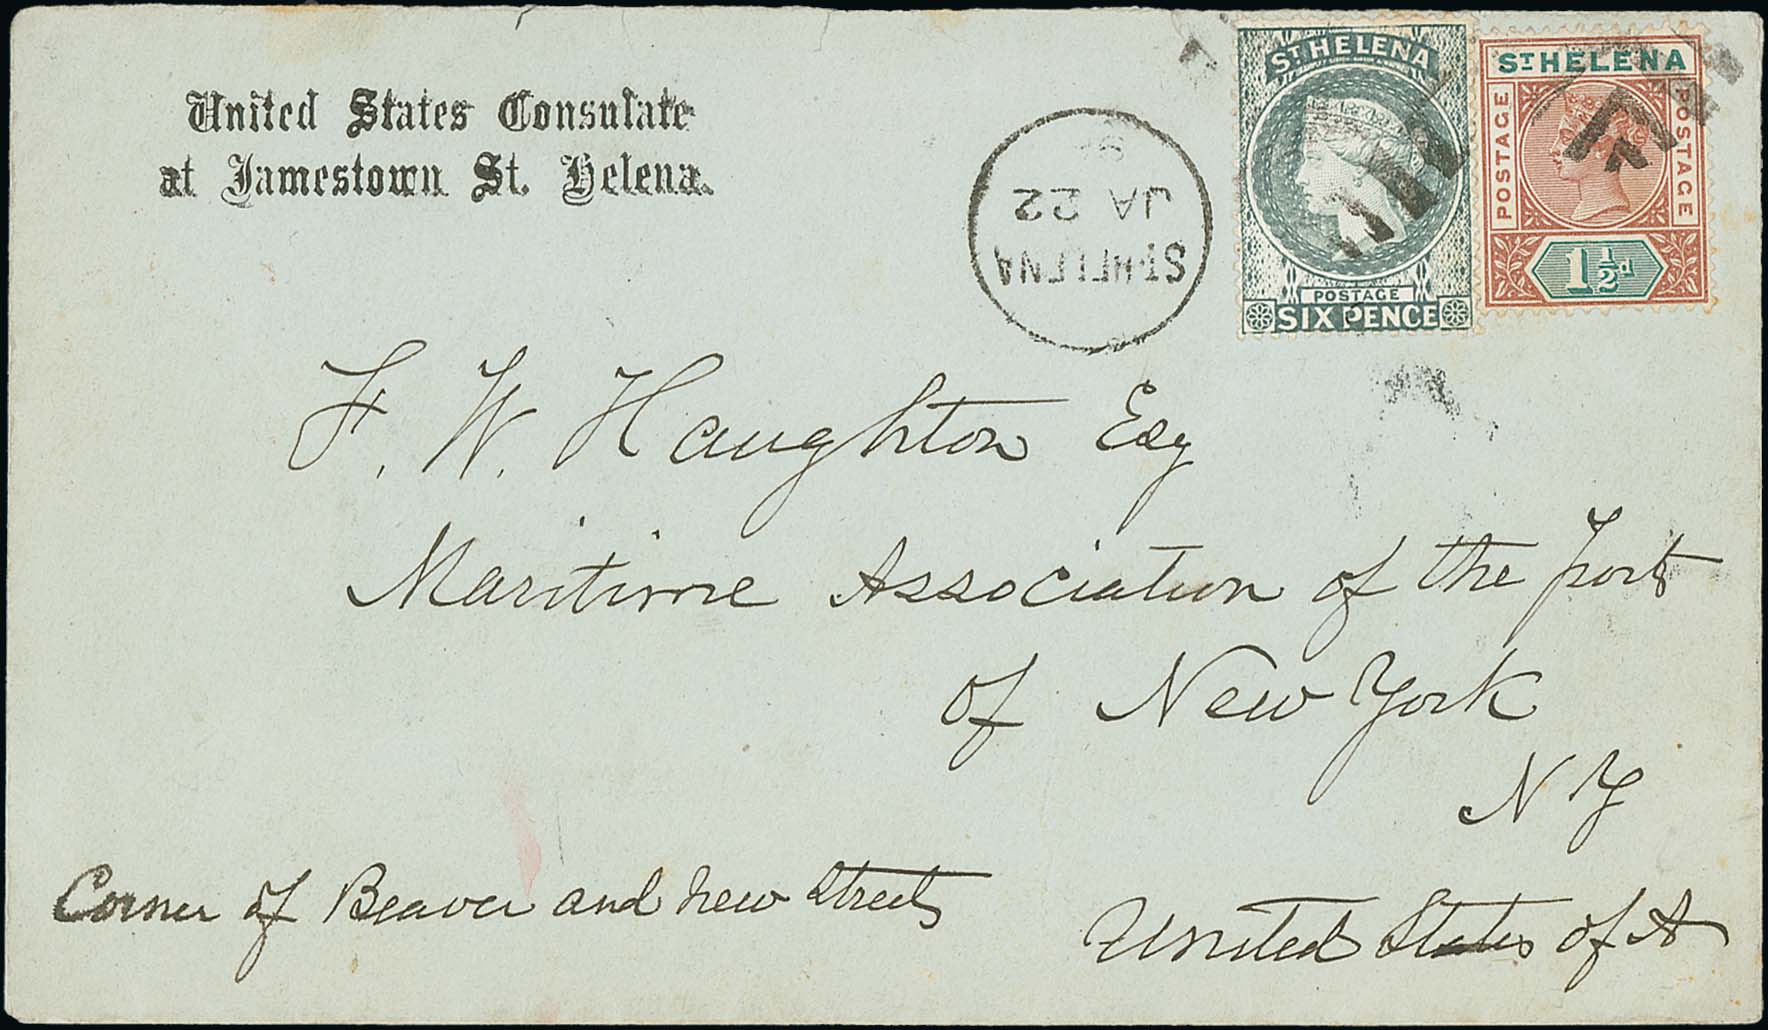 United States Consulate
at Jamestown St. Helena.
ST HELENA
JA 22
96
ST HELENA
POSTAGE
SIX PENCE
ST HELENA
POSTAGE
POSTAGE
1½d
F. W. Haughton Esq
Maritime Association of the Port
of New York
N Y
Corner of Beaver and New Streets
United States of A